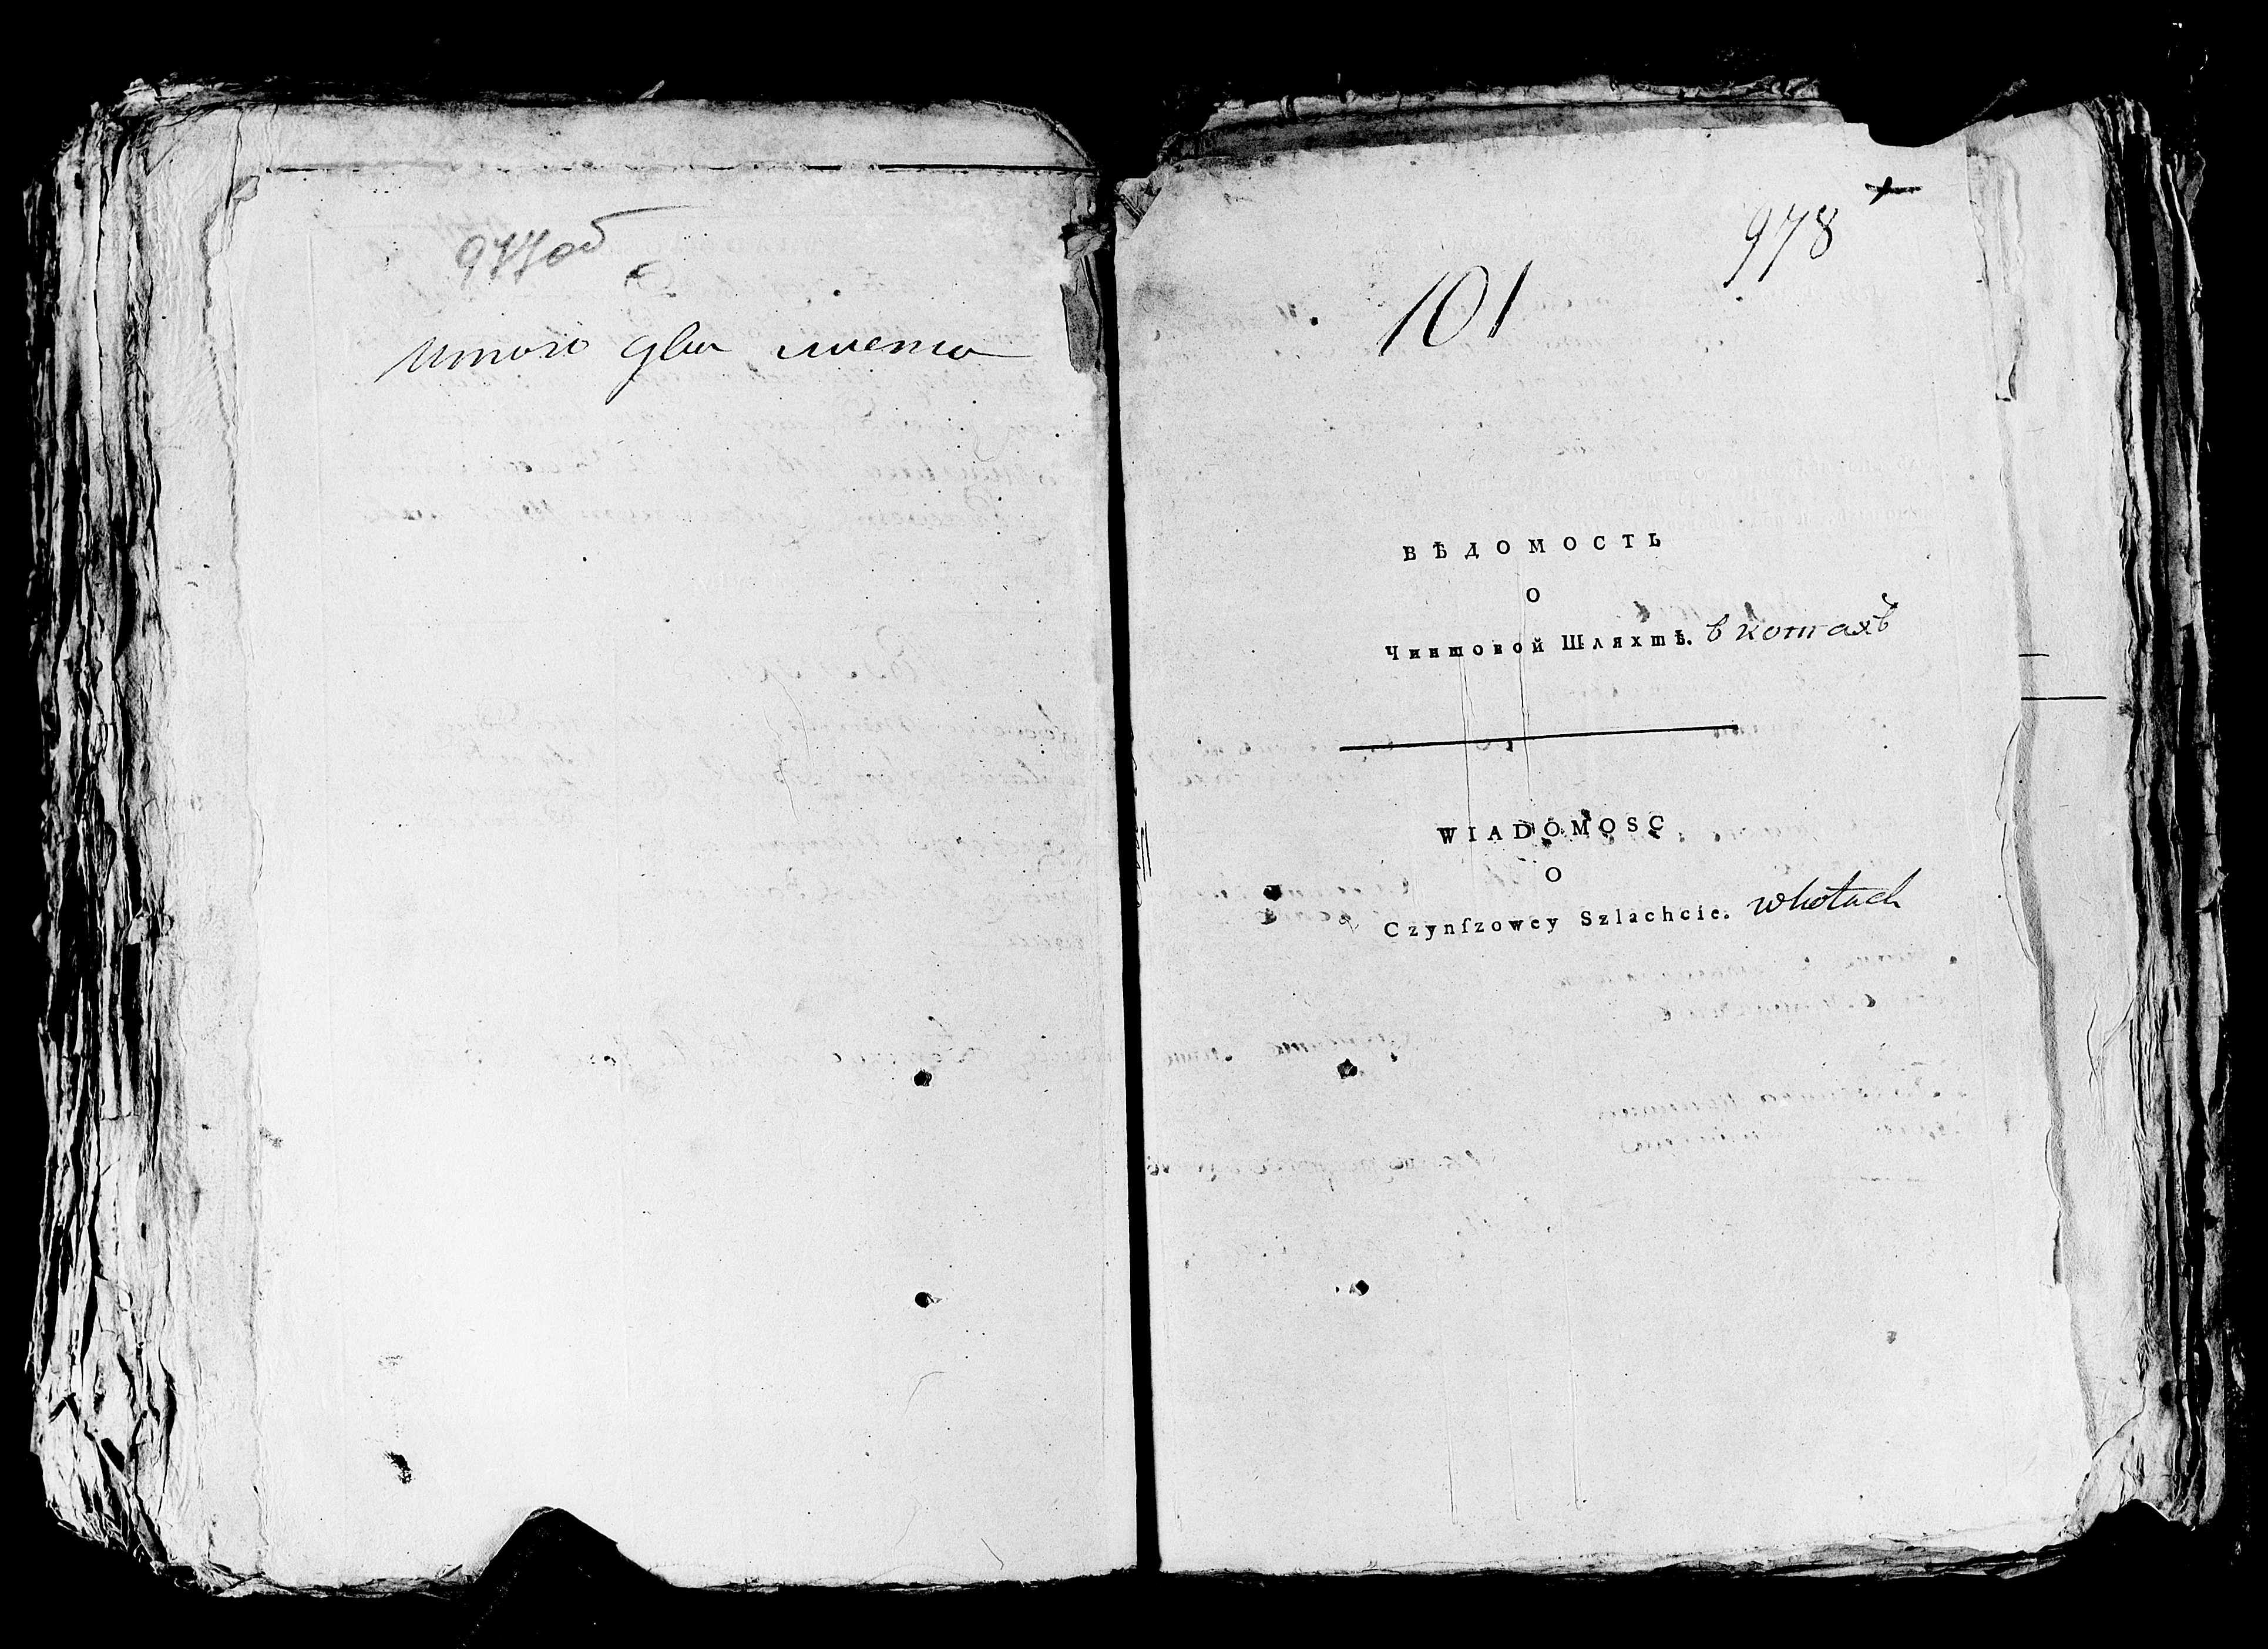 977об
Итого два листа
978
101
ВѢДОМОСТЬ
О
Чиншовой Шляхтѣ. в котахъ
WIADOMOSC
O
Czynſzowey Szlachcie. w kotach